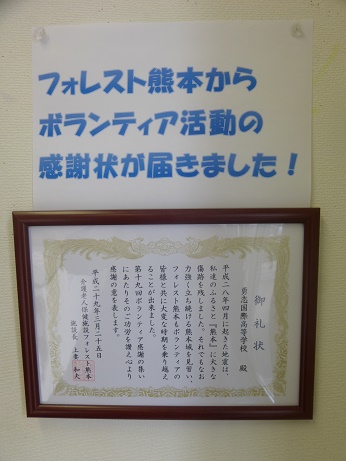 フォレスト熊本から
ボランティア活動の
感謝状が届きました！
御礼状
勇志国際高等学校 殿
平成二八年四月に起きた地震は、
私達のふるさと『熊本』に大きな
傷跡を残しました。それでもなお
力強く立ち続ける熊本城を見習い、
フォレスト熊本もボランティアの
皆様と共に大変な時期を乗り越え
ることが出来ました。
第十九回ボランティア感謝の集い
にあたりそのご功労を讃え心より
感謝の意を表します。
平成二十九年三月二十五日
介護老人保健施設フォレスト熊本
施設長